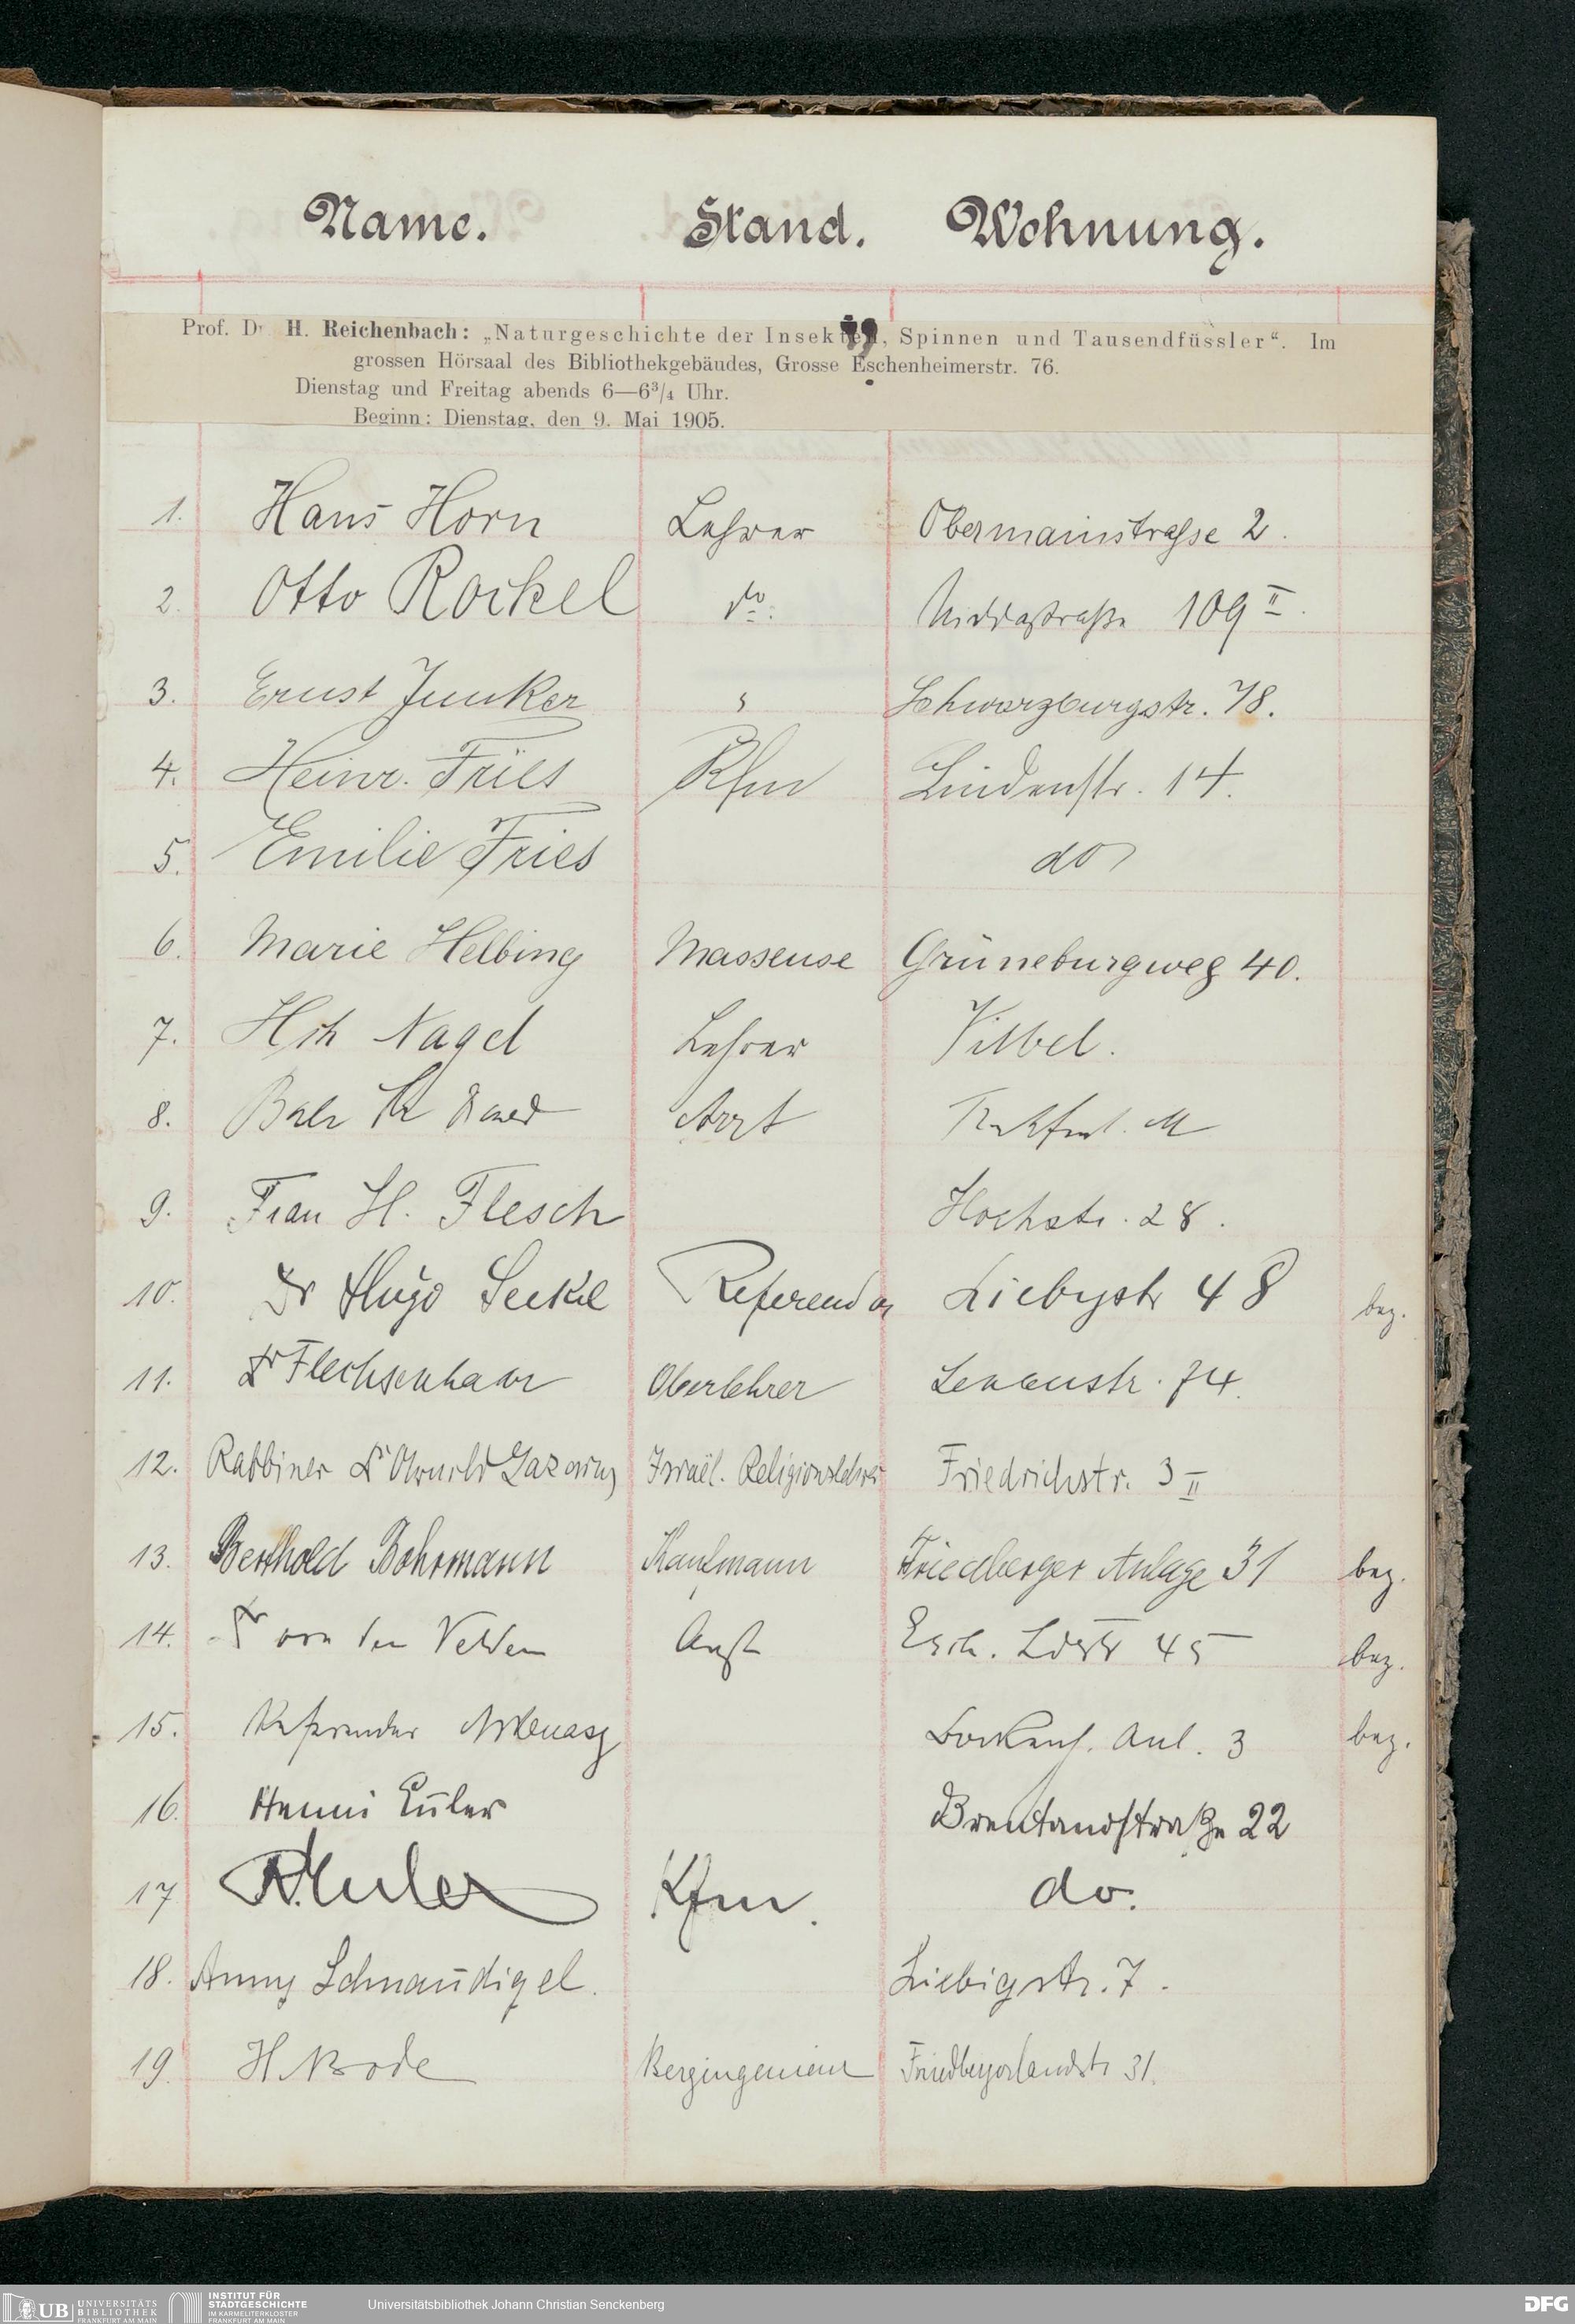 Name. Stand. Wohnung.
Prof. Dr. H. Reichenbach: „Naturgeschichte der Insekten, Spinnen und Tausendfüssler“. Im
grossen Hörsaal des Bibliothekgebäudes, Grosse Eschenheimerstr. 76.
Dienstag und Freitag abends 6—6³/₄ Uhr.
Beginn: Dienstag, den 9. Mai 1905.
1. Hans Horn Lehrer Obermainstraße 2.
2. Otto Rockel do. Niddastraße 109 II.
3. Ernst Junker " Schwarzburgstr. 78.
4. Heinr. Fries Kfm Lindenstr. 14.
5. Emilie Fries do
6. Marie Helbing Masseuse Grüneburgweg 40.
7. Hch Nagel Lehrer Vilbel.
8. Arzt
9. Frau H. Flesch Hochstr. 28.
10. Dr Hugo Seckel Referendar Liebigstr 48 bez.
11. Dr Flechsenhaar Oberlehrer Lenaustr. 74.
12. Rabbiner Dr Arnold Lazarus Israël. Religionslehrer Friedrichstr. 3 II
13. Berthold Bohrmann Kaufmann Friedberger Anlage 31 bez.
14. Dr von den Velden Arzt Esch. Ldstr 45 bez.
15. Referendar Askenasy Bockenh. Anl. 3 bez.
16. Henni Euler Brentanostraße 22
17 Euler Kfm. do.
18. Anny Schnaudigel. Liebigstr. 7.
19. H. Bode Bergingenieur Friedbergerlandstr 31.
UB UNIVERSITÄTS
BIBLIOTHEK
FRANKFURT AM MAIN
INSTITUT FÜR
STADTGESCHICHTE
IM KARMELITERKLOSTER
FRANKFURT AM MAIN
Universitätsbibliothek Johann Christian Senckenberg
DFG